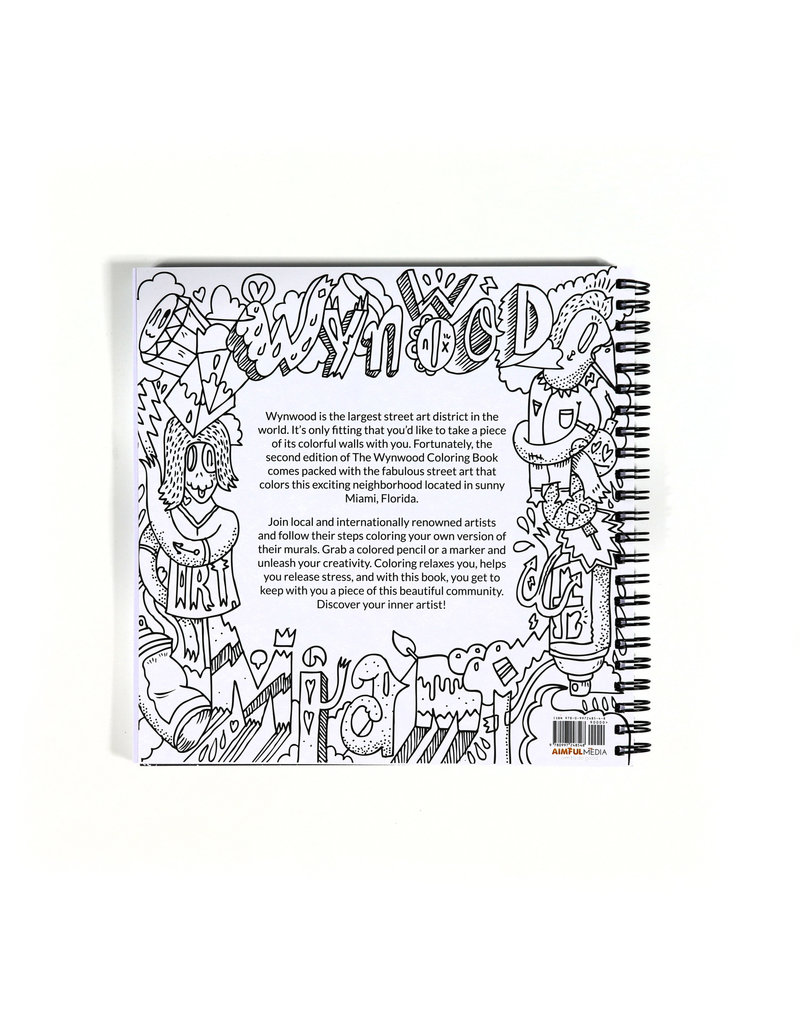 WYNWOOD
Wynwood is the largest street art district in the
world. It's only fitting that you'd like to take a piece
of its colorful walls with you. Fortunately, the
second edition of The Wynwood Coloring Book
comes packed with the fabulous street art that
colors this exciting neighborhood located in sunny
Miami, Florida.
Join local and internationally renowned artists
and follow their steps coloring your own version of
their murals. Grab a colored pencil or a marker and
unleash your creativity. Coloring relaxes you, helps
you release stress, and with this book, you get to
keep with you a piece of this beautiful community.
Discover your inner artist!
ART
Miami
90000>
AIMFULMEDIA